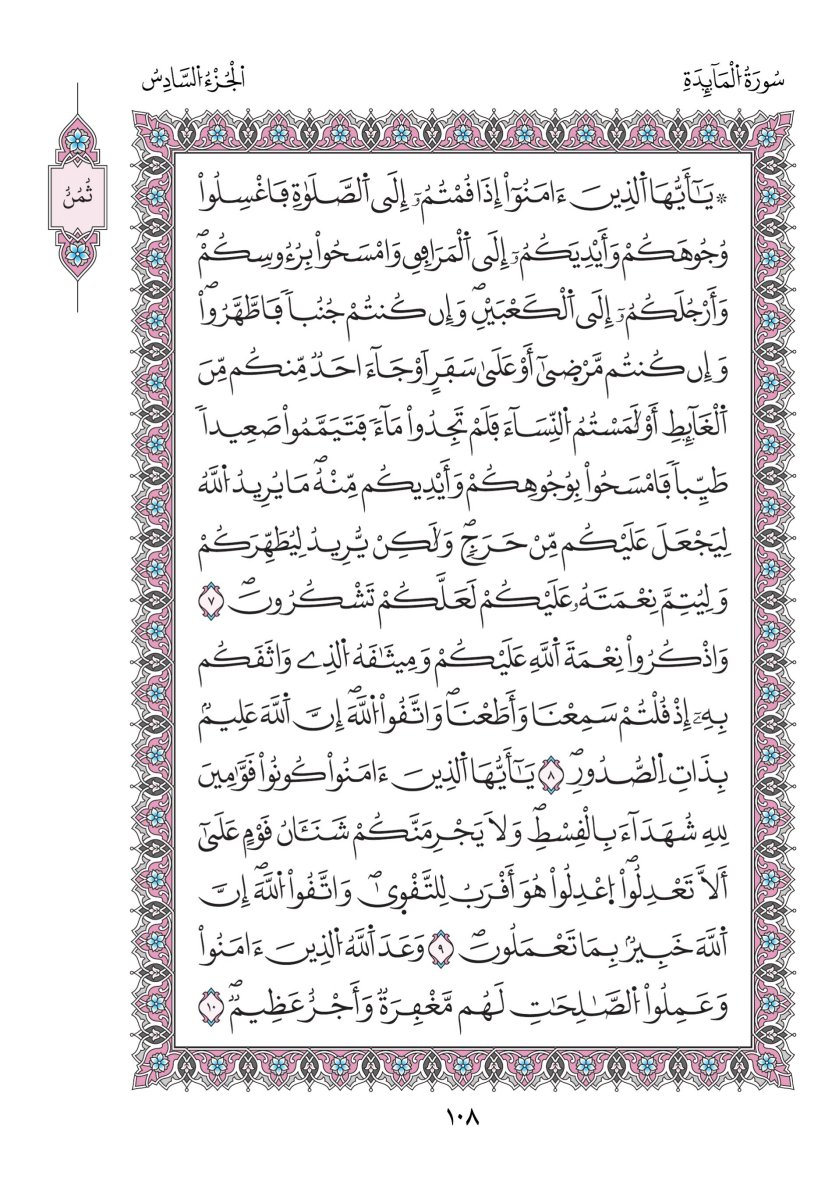 سُورَةُ الْمَآئِدَةِ
الْجُزْءُ السَّادِسُ
ثُمُنُ
* يَٰٓأَيُّهَا اَلذِينَ ءَامَنُوٓاْ إِذَا قُمْتُمُۥٓ إِلَى اَلصَّلَوٰةِ فَاغْسِلُواْ
وُجُوهَكُمْ وَأَيْدِيَكُمُۥٓ إِلَى اَلْمَرَافِقِ وَامْسَحُواْ بِرُءُوسِكُمْ
وَأَرْجُلَكُمُۥٓ إِلَى اَلْكَعْبَيْنِ وَإِن كُنتُمْ جُنُباً فَاطَّهَّرُواْ
وَإِن كُنتُم مَّرْضَىٰٓ أَوْ عَلَىٰ سَفَرٍ اَوْ جَآءَ احَدٌ مِّنكُم مِّنَ
اَلْغَآئِطِ أَوْ لَٰمَسْتُمُ اُلنِّسَآءَ فَلَمْ تَجِدُواْ مَآءً فَتَيَمَّمُواْ صَعِيداً
طَيِّباً فَامْسَحُواْ بِوُجُوهِكُمْ وَأَيْدِيكُم مِّنْهُ مَا يُرِيدُ اُللَّهُ
لِيَجْعَلَ عَلَيْكُم مِّنْ حَرَجٍ وَلَٰكِنْ يُّرِيدُ لِيُطَهِّرَكُمْ
وَلِيُتِمَّ نِعْمَتَهُۥ عَلَيْكُمْ لَعَلَّكُمْ تَشْكُرُونَ ٧
وَاذْكُرُواْ نِعْمَةَ اَللَّهِ عَلَيْكُمْ وَمِيثَٰقَهُ اُلذِے وَاثَقَكُم
بِهِۦٓ إِذْ قُلْتُمْ سَمِعْنَا وَأَطَعْنَا وَاتَّقُواْ اُللَّهَ إِنَّ اَللَّهَ عَلِيمٌ
بِذَاتِ اِلصُّدُورِ ٨ يَٰٓأَيُّهَا اَلذِينَ ءَامَنُواْ كُونُواْ قَوَّٰمِينَ
لِلهِ شُهَدَآءَ بِالْقِسْطِ وَلَا يَجْرِمَنَّكُمْ شَنَـَٔانُ قَوْمٍ عَلَىٰٓ
أَلَّا تَعْدِلُواْ اُ۪عْدِلُواْ هُوَ أَقْرَبُ لِلتَّقْوَىٰ وَاتَّقُواْ اُللَّهَ إِنَّ
اَللَّهَ خَبِيرٌ بِمَا تَعْمَلُونَ ٩ وَعَدَ اَللَّهُ اُلذِينَ ءَامَنُواْ
وَعَمِلُواْ اُلصَّٰلِحَٰتِ لَهُم مَّغْفِرَةٌ وَأَجْرٌ عَظِيمٌ ١٠
١٠٨